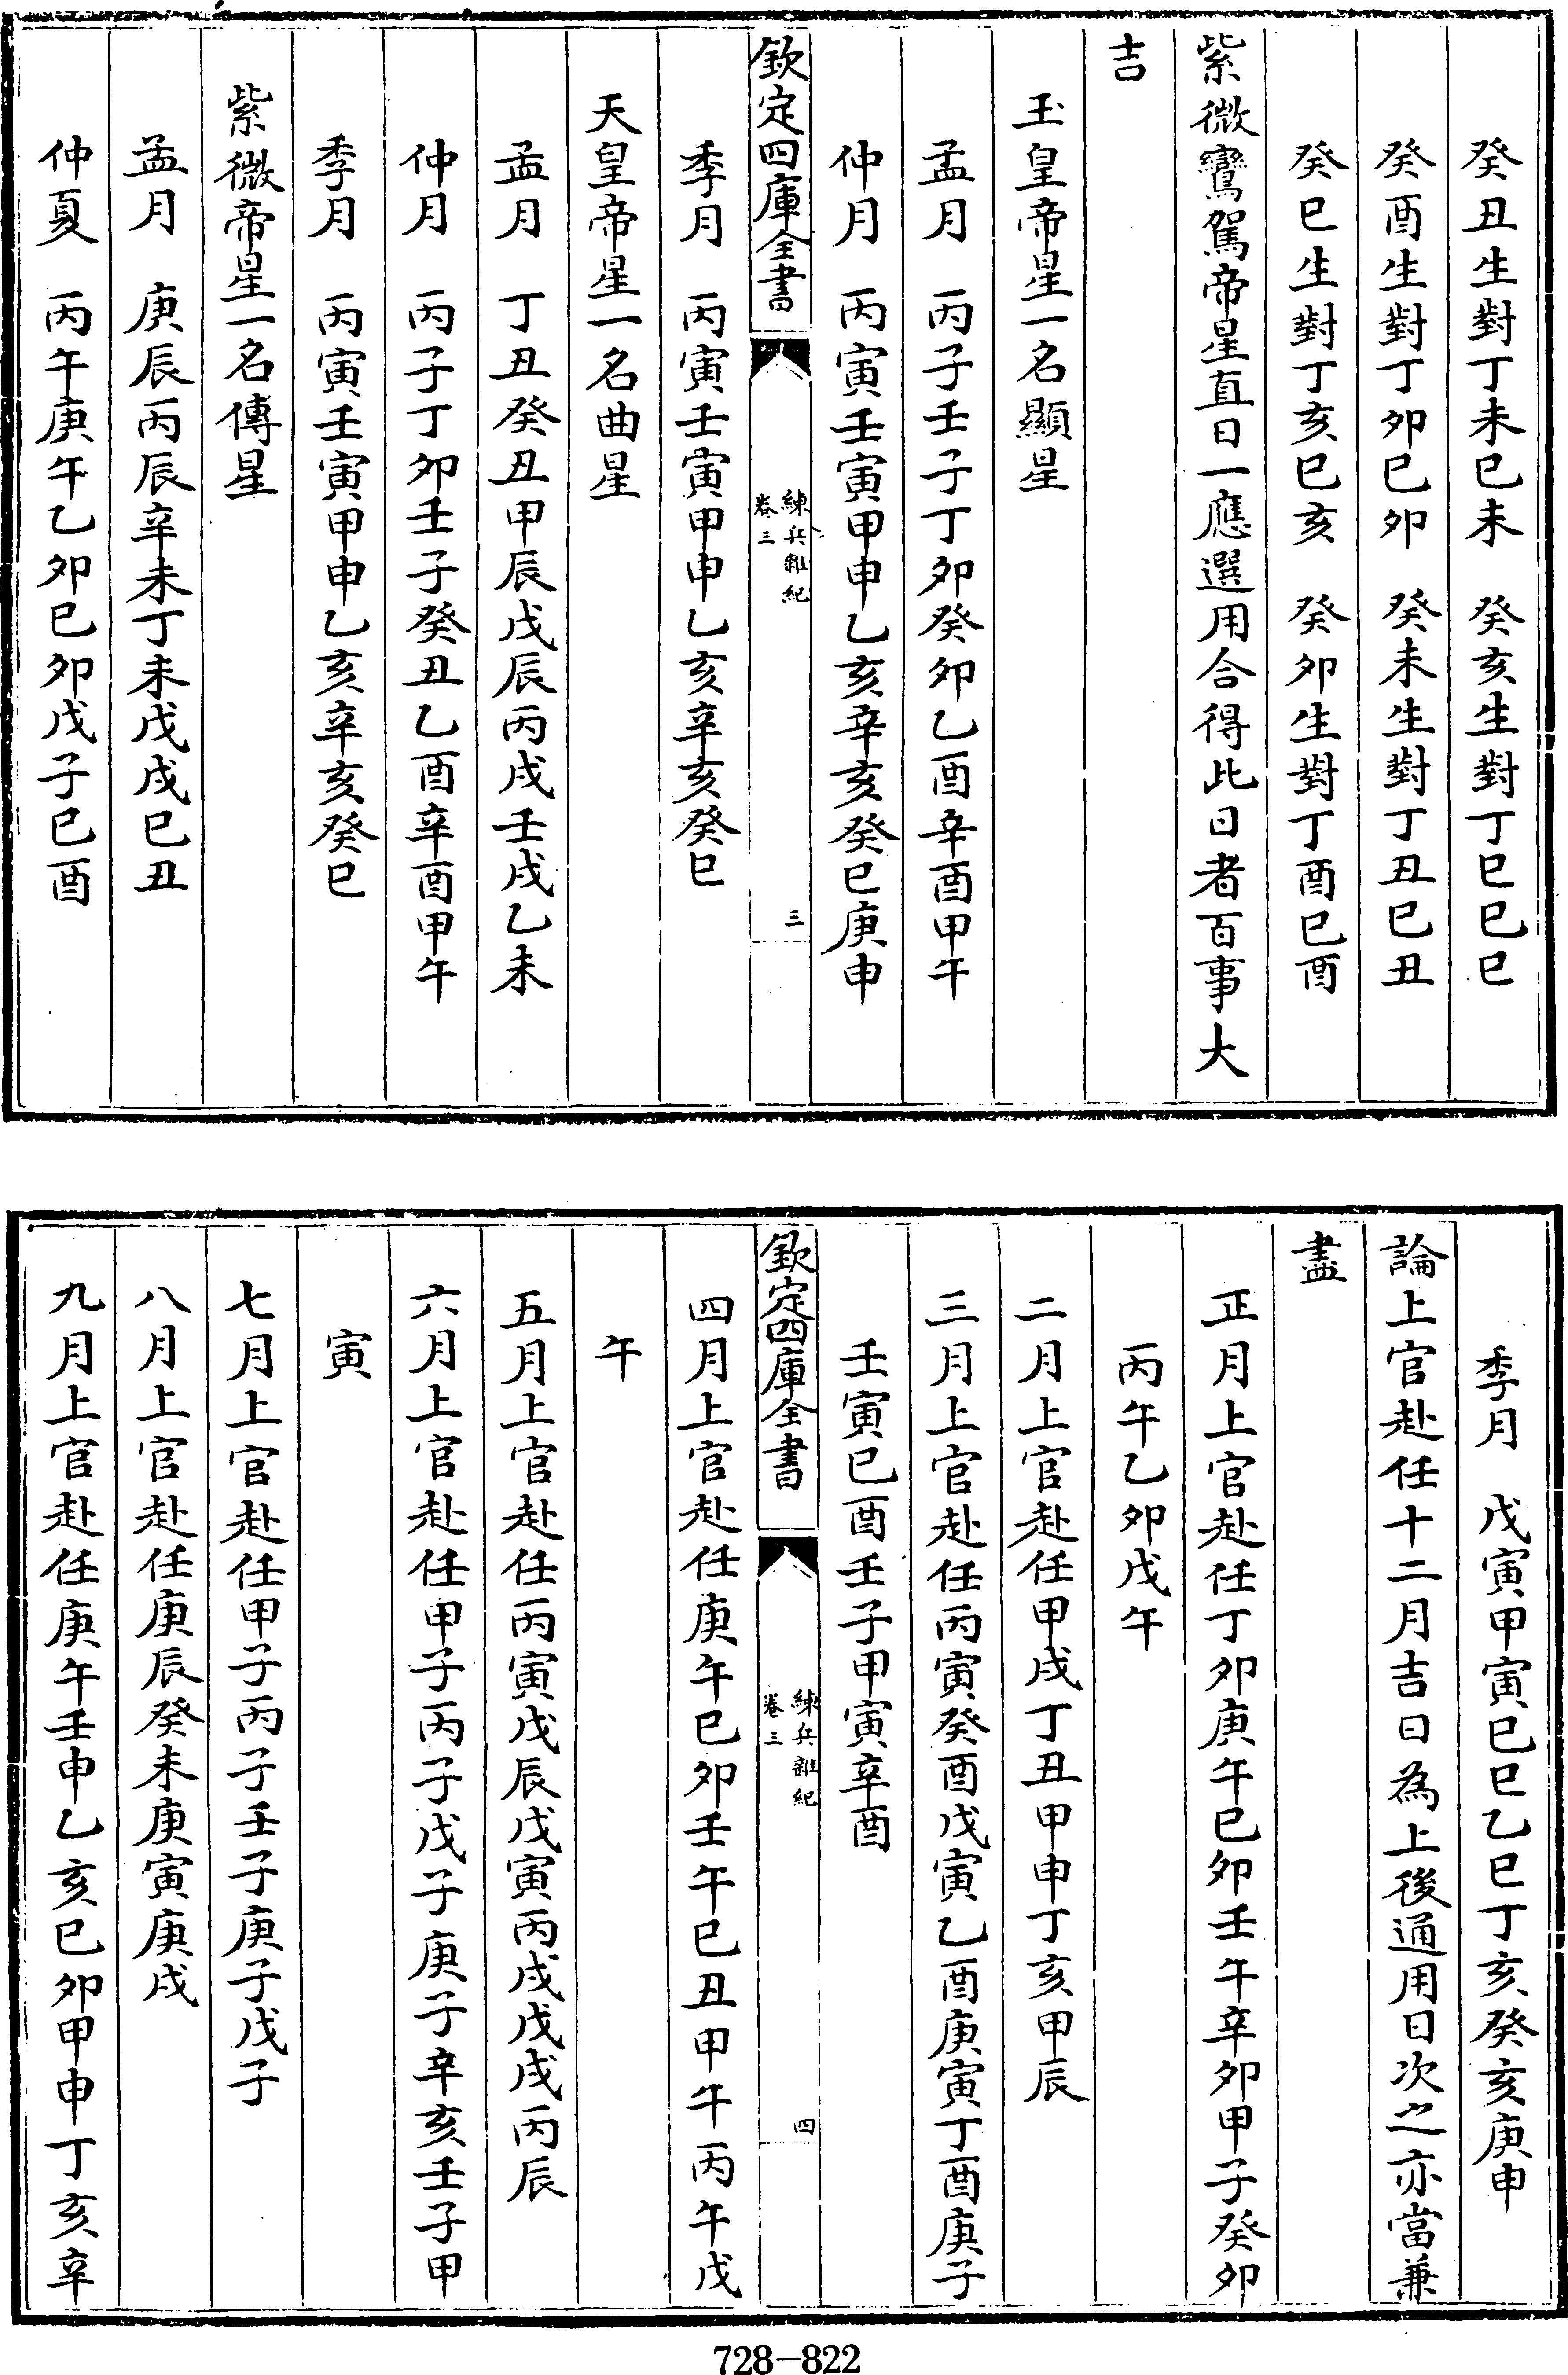 癸丑生對丁未巳未　癸亥生對丁巳巳巳
癸酉生對丁卯巳卯　癸未生對丁丑巳丑
癸巳生對丁亥巳亥　癸卯生對丁酉巳酉
紫微鸞駕帝星直日一應選用合得此日者百事大
吉
玉皇帝星一名顯星
孟月　丙子壬子丁卯癸卯乙酉辛酉甲午
仲月　丙寅壬寅甲申乙亥辛亥癸巳庚申
欽定四庫全書
練兵雜紀
卷三
三
季月　丙寅壬寅甲申乙亥辛亥癸巳
天皇帝星一名曲星
孟月　丁丑癸丑甲辰戊辰丙戌壬戌乙未
仲月　丙子丁卯壬子癸丑乙酉辛酉甲午
季月　丙寅壬寅甲申乙亥辛亥癸巳
紫微帝星一名傳星
孟月　庚辰丙辰辛未丁未戊戌巳丑
仲夏　丙午庚午乙卯巳卯戊子巳酉
季月　戊寅甲寅巳巳乙巳丁亥癸亥庚申
論上官赴任十二月吉日為上後通用日次之亦當兼
盡
正月上官赴任丁卯庚午巳卯壬午辛卯甲子癸卯
丙午乙卯戊午
二月上官赴任甲戌丁丑甲申丁亥甲辰
三月上官赴任丙寅癸酉戊寅乙酉庚寅丁酉庚子
壬寅巳酉壬子甲寅辛酉
欽定四庫全書
練兵雜紀
卷三
四
四月上官赴任庚午巳卯壬午巳丑甲午丙午戊
午
五月上官赴任丙寅戊辰戊寅丙戌戊戌丙辰
六月上官赴任甲子丙子戊子庚子辛亥壬子甲
寅
七月上官赴任甲子丙子壬子庚子戊子
八月上官赴任庚辰癸未庚寅庚戌
九月上官赴任庚午壬申乙亥巳卯甲申丁亥辛
728-822